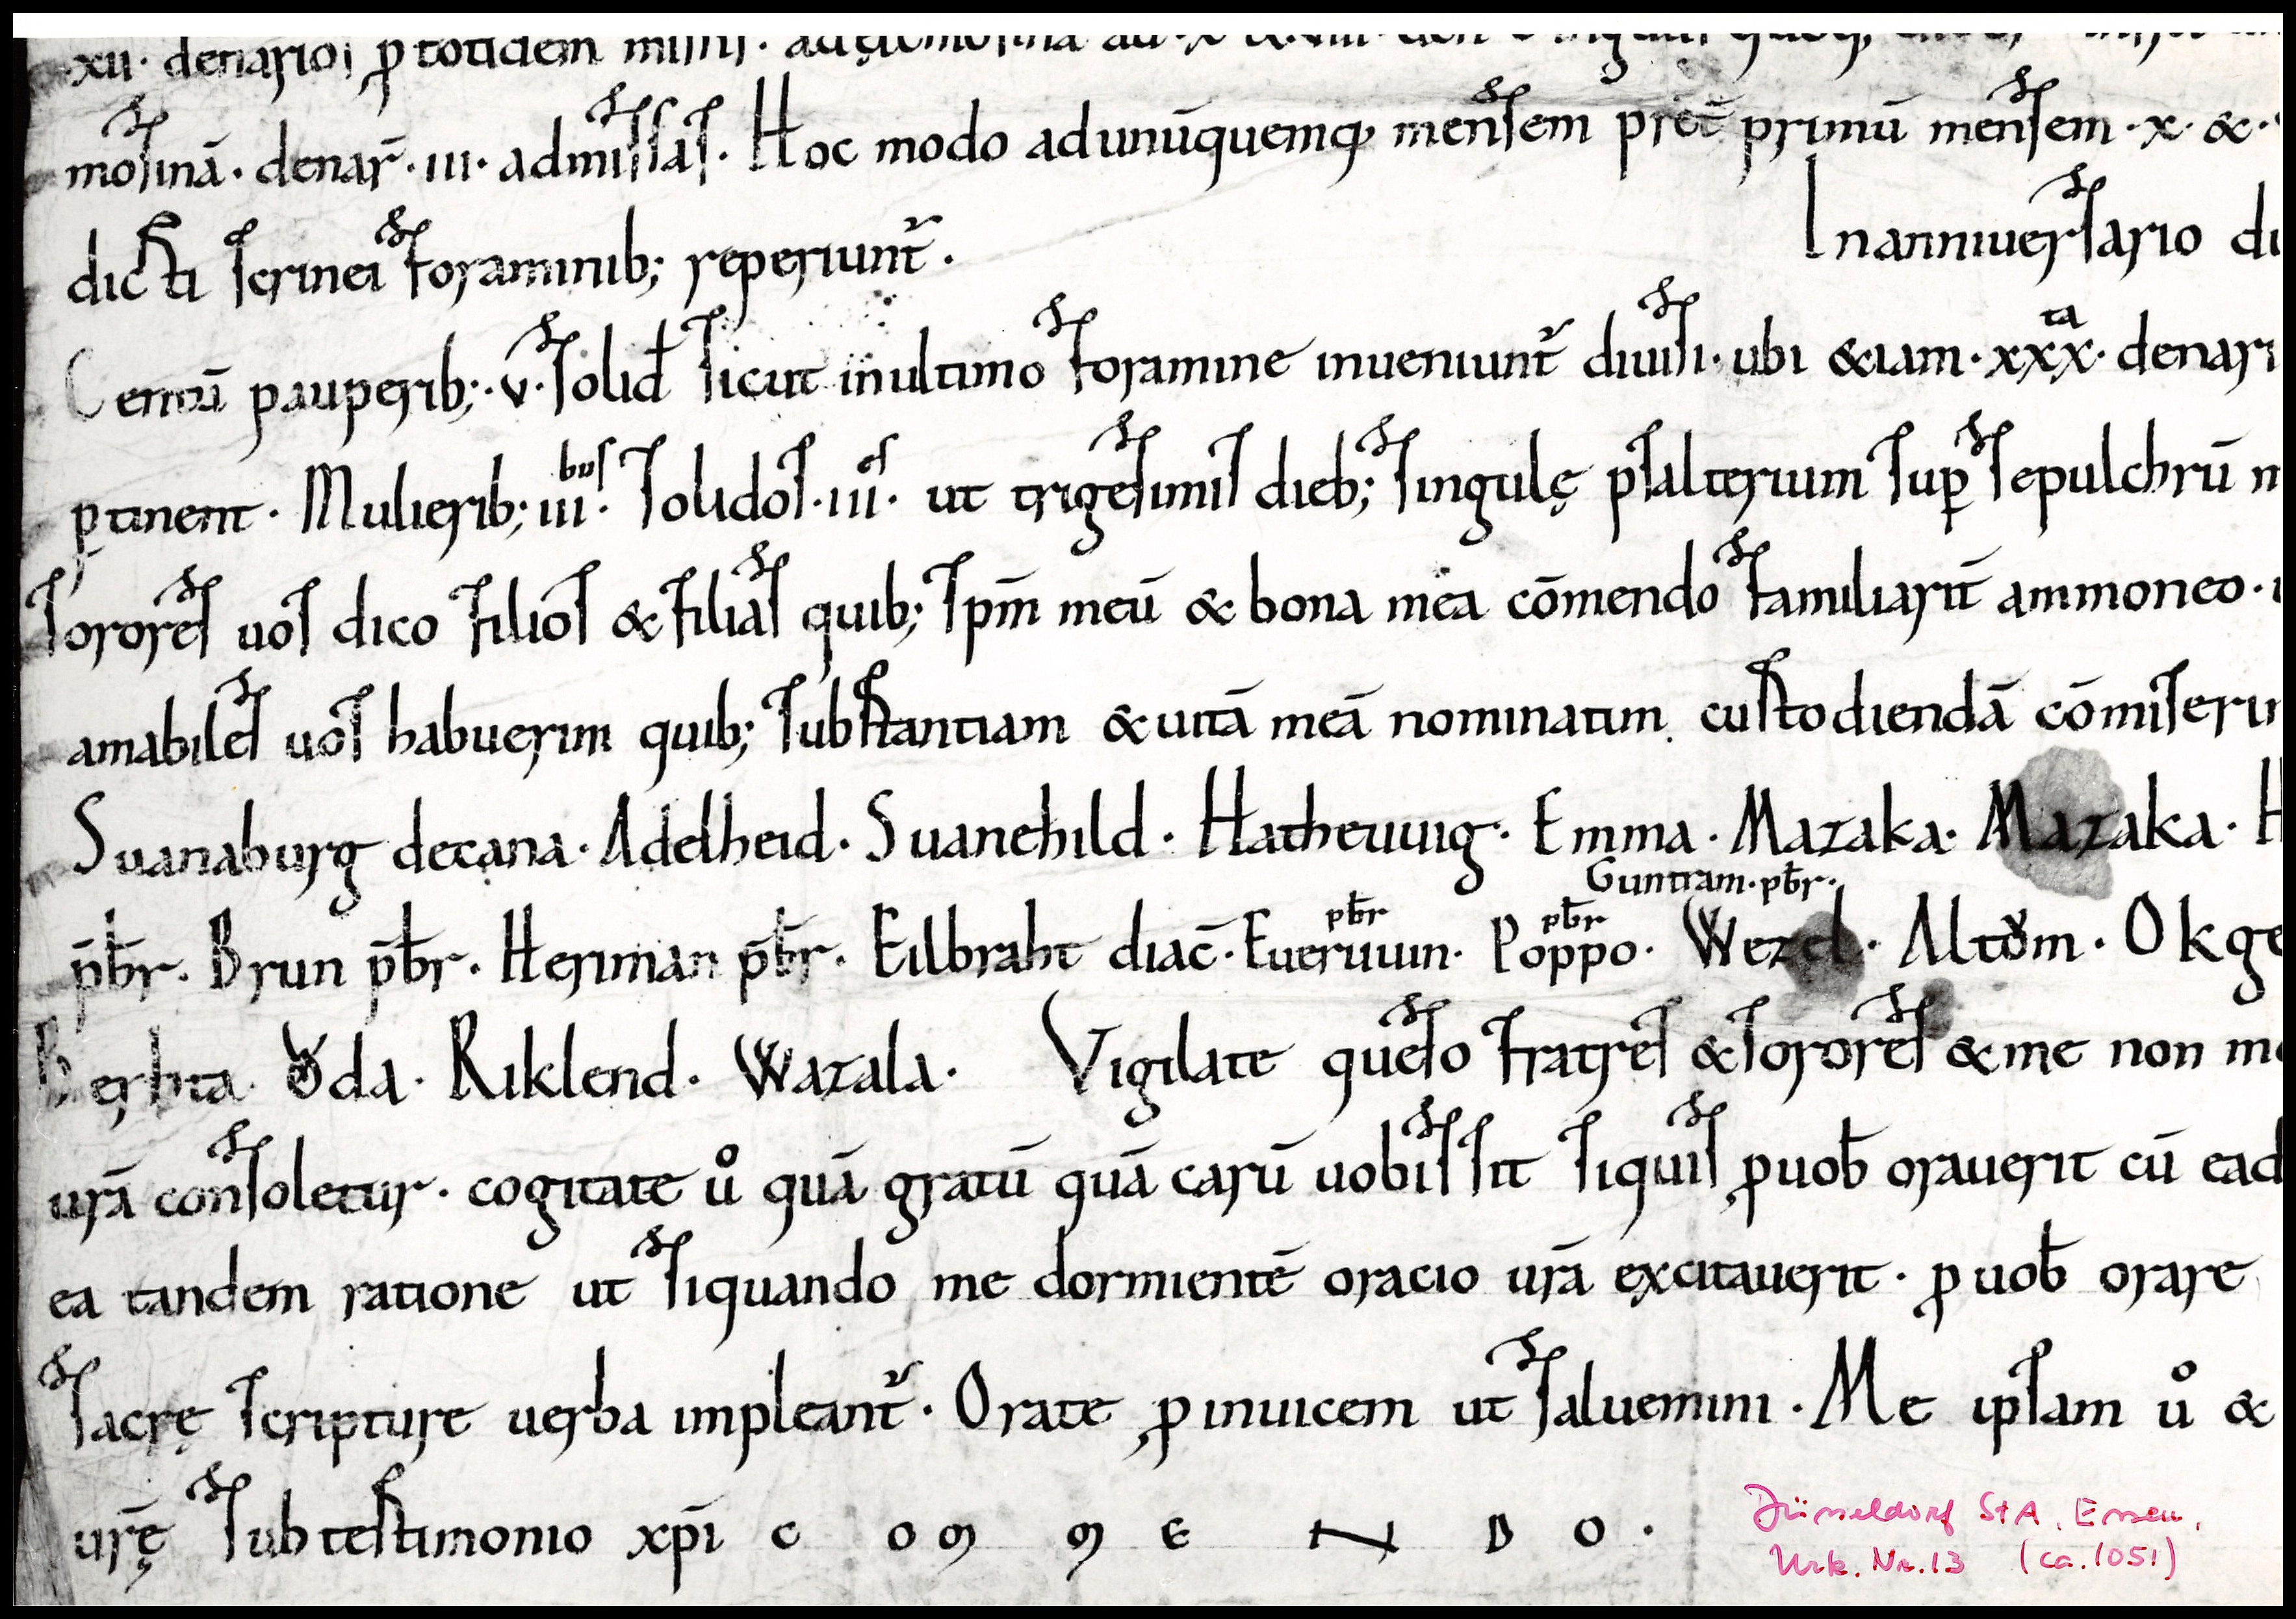 ·xii· denarios ꝑ totidem missis·
mosinā· denar̄ ·iii· admissas· Hoc modo adunūquemq; mensem p̄ret̄ primū mensem ·x· &·
dicti scrinei foraminib; reperiunt᷑.
Inanniuersario di
Centū pauperib;· v· solid̄ sicut inultimo foramine inueniunt᷑ diuisi· ubi &iam ·xxxᵗᵃ· denari
ꝑtinent· Mulierib; iiiᵇᵘˢ· solidos ·iiiᵉˢ· ut trigesimis dieb; singulę psalterium suꝑ sepulchrū m
Sorores uos dico filios & filias quib; sp̄m meū & bona mea cōmendo familiarit̄ ammoneo·
amabiles uos habuerim quib; substantiam &uitā meā nominatim custodiendā cōmiserim
Suanaburg decana· Adelheid· Suanehild· Hatheuuig· Emma· Mazaka· Mazaka· H
Guntram·pb̄r·
pb̄r pb̄r
p̄b̄r· Brun p̄b̄r· Heriman p̄b̄r· Eilbraht diac̄· Eueruuin· Poppo· Wezel· Altom· Okge
Berhta· Oda· Riklend· Wazala· Vigilate queso fratres &sorores &me non mo
urā consoletur· cogitate uͦ quā gratū quā carū uobis sit siquis ꝓ uob̄ orauerit cū ead
ea tandem ratione ut siquando me dormientē oracio urā excitauerit· ꝓ uob̄ orare
sacrę scripture uerba impleant᷑· Orate ꝓ inuicem ut saluemini· Me ipsam uͦ &
urę̄ sub testimonio xp̄i C O M M E N D O ·
Düsseldorf StA, Essen,
Urk. Nr. 13 (ca. 1051)